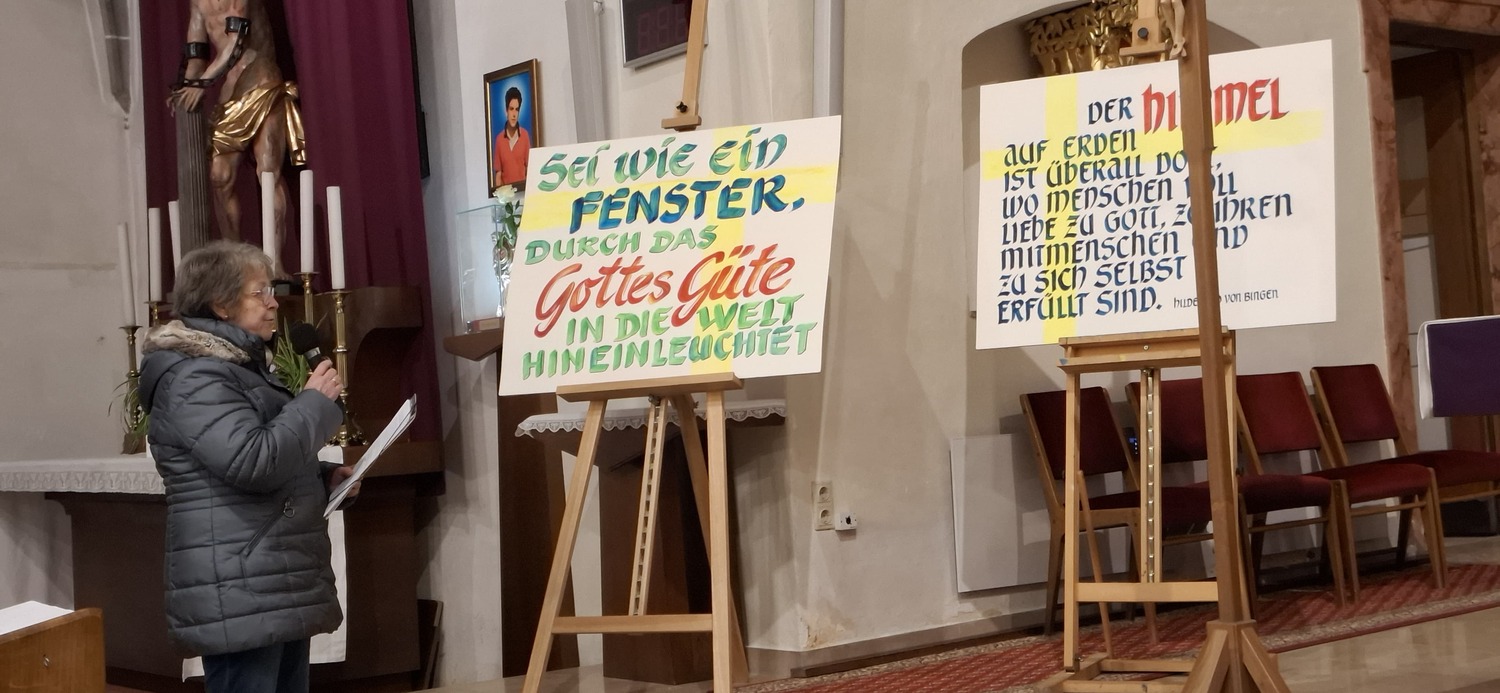 Sei wie ein
FENSTER,
DURCH DAS
Gottes Güte
IN DIE WELT
HINEINLEUCHTET
DER
AUF ERDEN
IST ÜBERALL
WO MENSCHEN
LIEBE ZU GOTT, IHREN
MITMENSCHEN
ZU SICH SELBST
ERFÜLLT SIND.
VON BINGEN